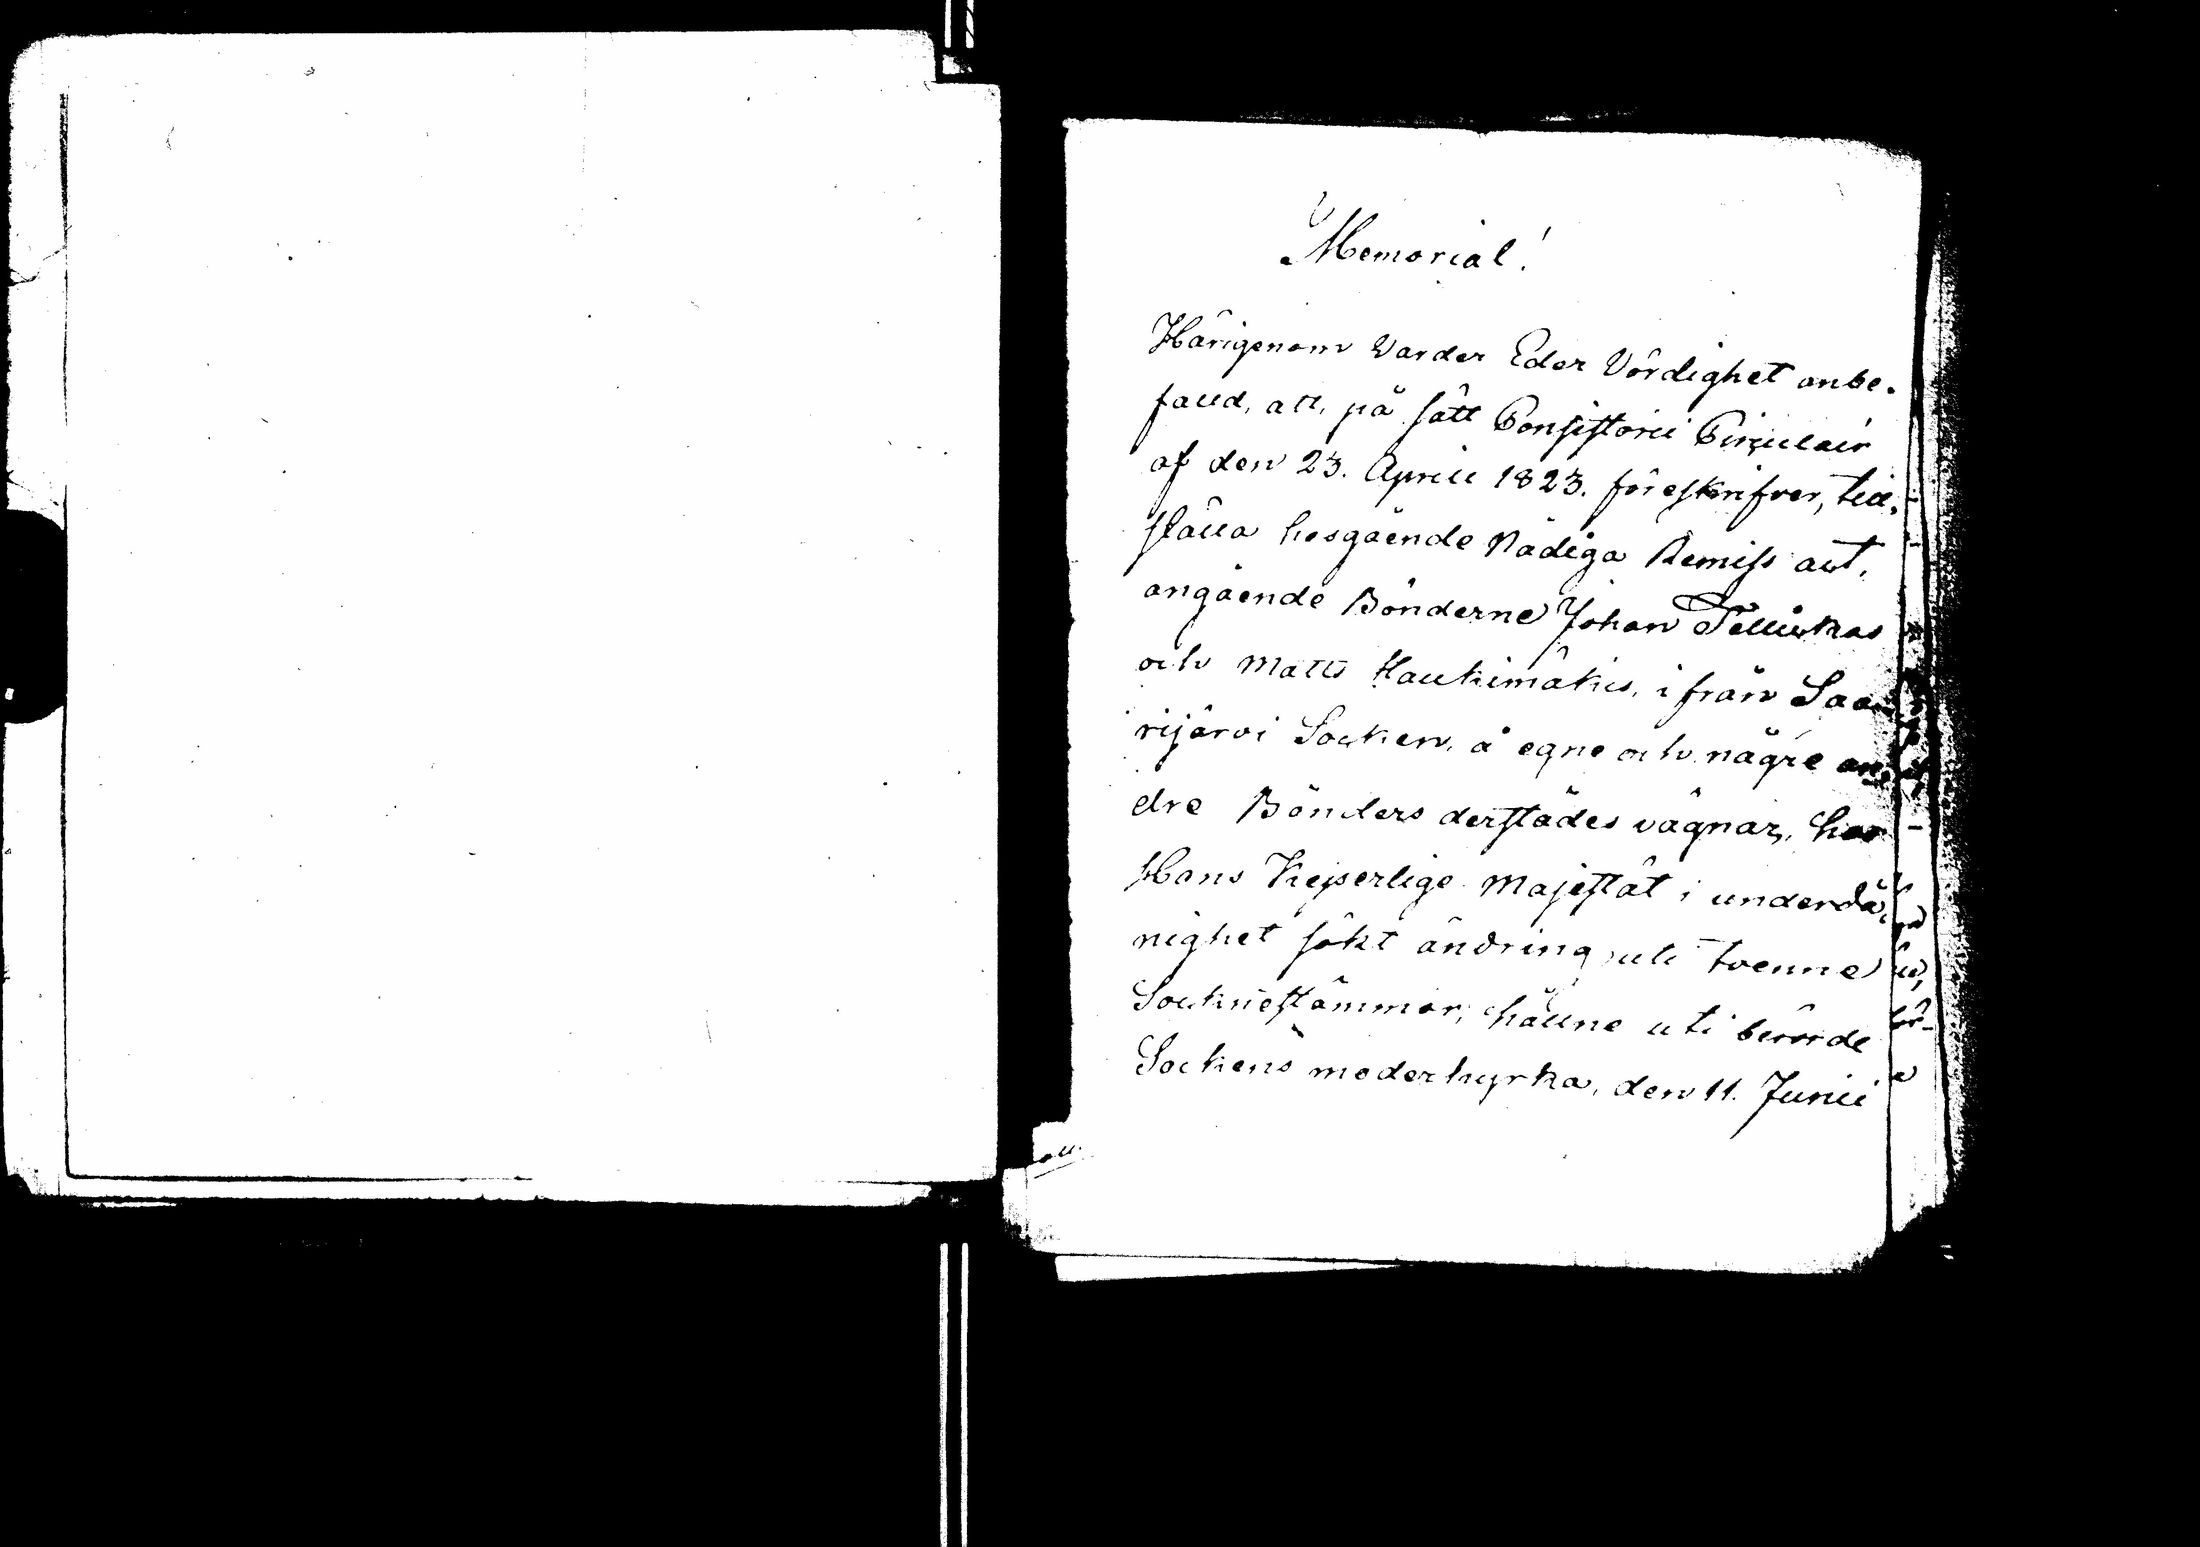 Memorial!
Härigenom varder Eder Vördighet anbe-
falld, att, på sätt Consistorii Circulair
af den 23. Aprill 1823. föreskrifver, till-
ställa hosgående Nådiga Remiss act,
angående Bönderne Johan
och Matts Haukimäkis, ifrån Saa-
rijärvi Socken, å egne och någre an-
dre Bönders derstädes vägnar, hos
Hans Kejserlige Majestät i underdå-
nighet sökt ändring uti tvenne
Socknestämmor, hållne uti berörde
Sockens moderkyrka, den 11. Junii